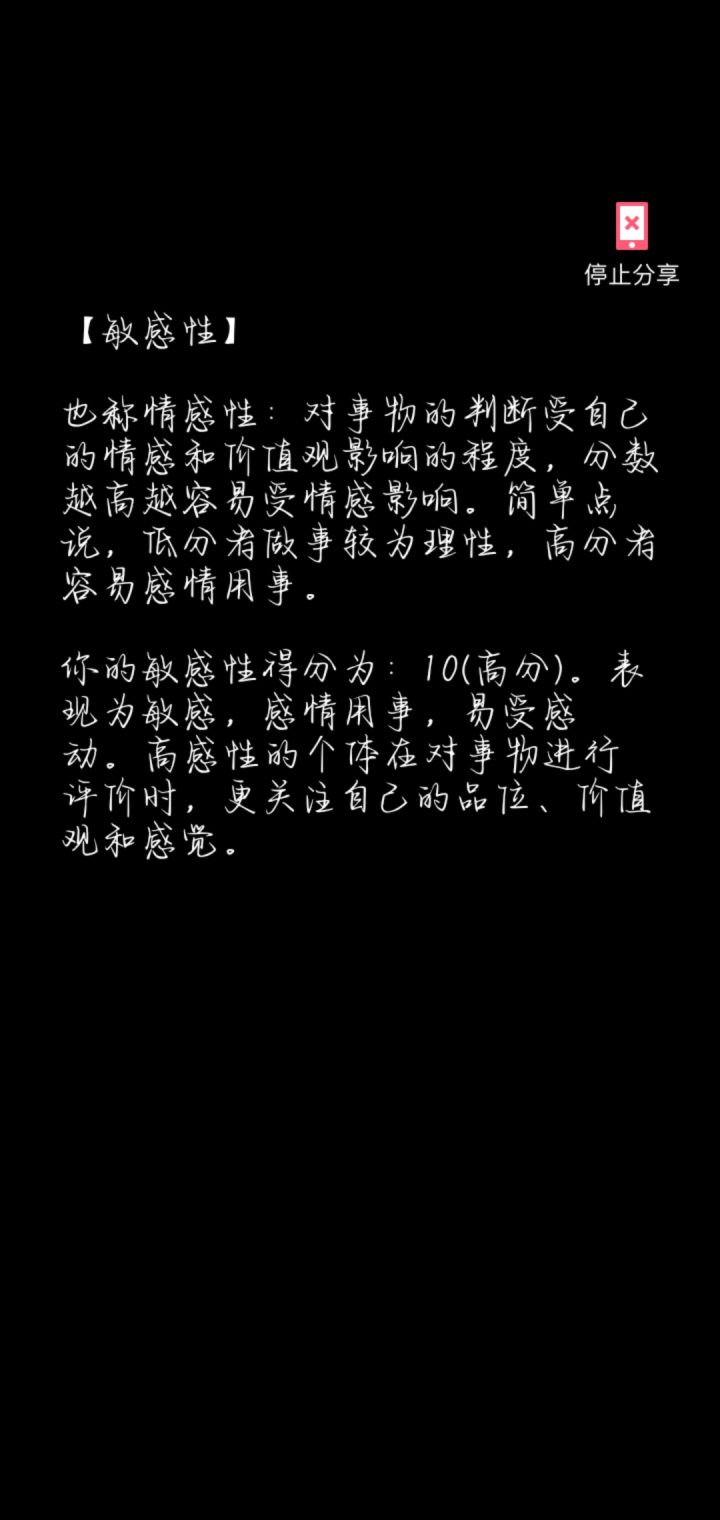 停止分享
【敏感性】
也称情感性：对事物的判断受自己
的情感和价值观影响的程度，分数
越高越容易受情感影响。简单点
说，低分者做事较为理性，高分者
容易感情用事。
你的敏感性得分为：10(高分)。表
现为敏感，感情用事，易受感
动。高感性的个体在对事物进行
评价时，更关注自己的品位、价值
观和感觉。